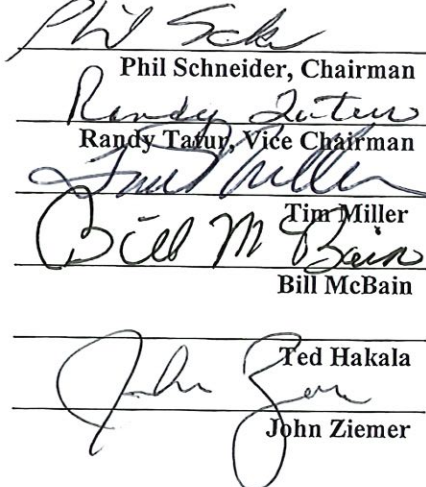 Phil Schneider, Chairman
Randy Tatur
Randy Tatur, Vice Chairman
Tim Miller
Tim Miller
Bill McBain
Bill McBain
Ted Hakala
John
John Ziemer